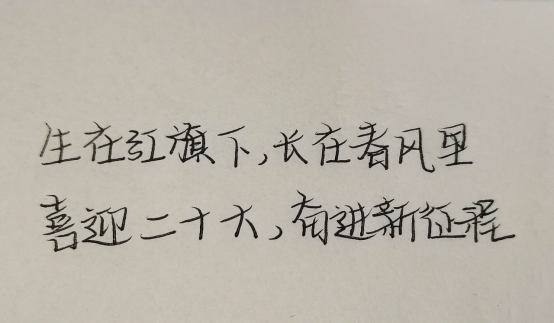 生在红旗下,长在春风里
喜迎二十大,奋进新征程